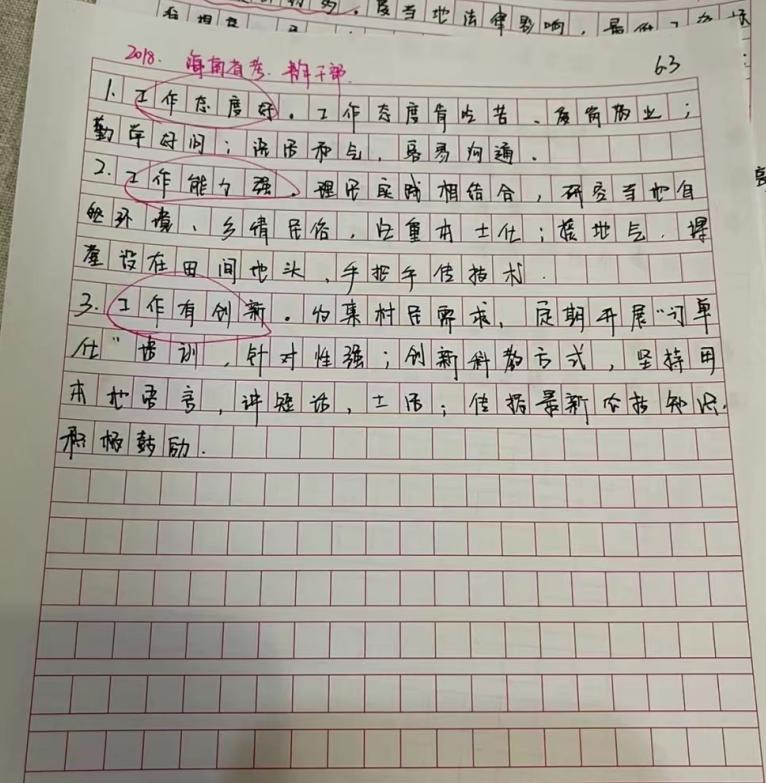 度当地法律影响,
2018. 海南省考. 青年干部.
63
1. 工作态度好。工作态度肯吃苦、爱岗敬业;
勤学好问;语居和气,容易沟通.
2. 工作能力强。理居实践相结合,研究当地自
然环境、乡情民俗,注重本土化;接地气,课
堂设在田间地头,手把手传技术.
3. 工作有创新。收集村民需求,定期开展“订单
式”培训,针对性强;创新科教方式,坚持用
本地语言,讲短话,土话;传播最新农技知识.
积极鼓励.